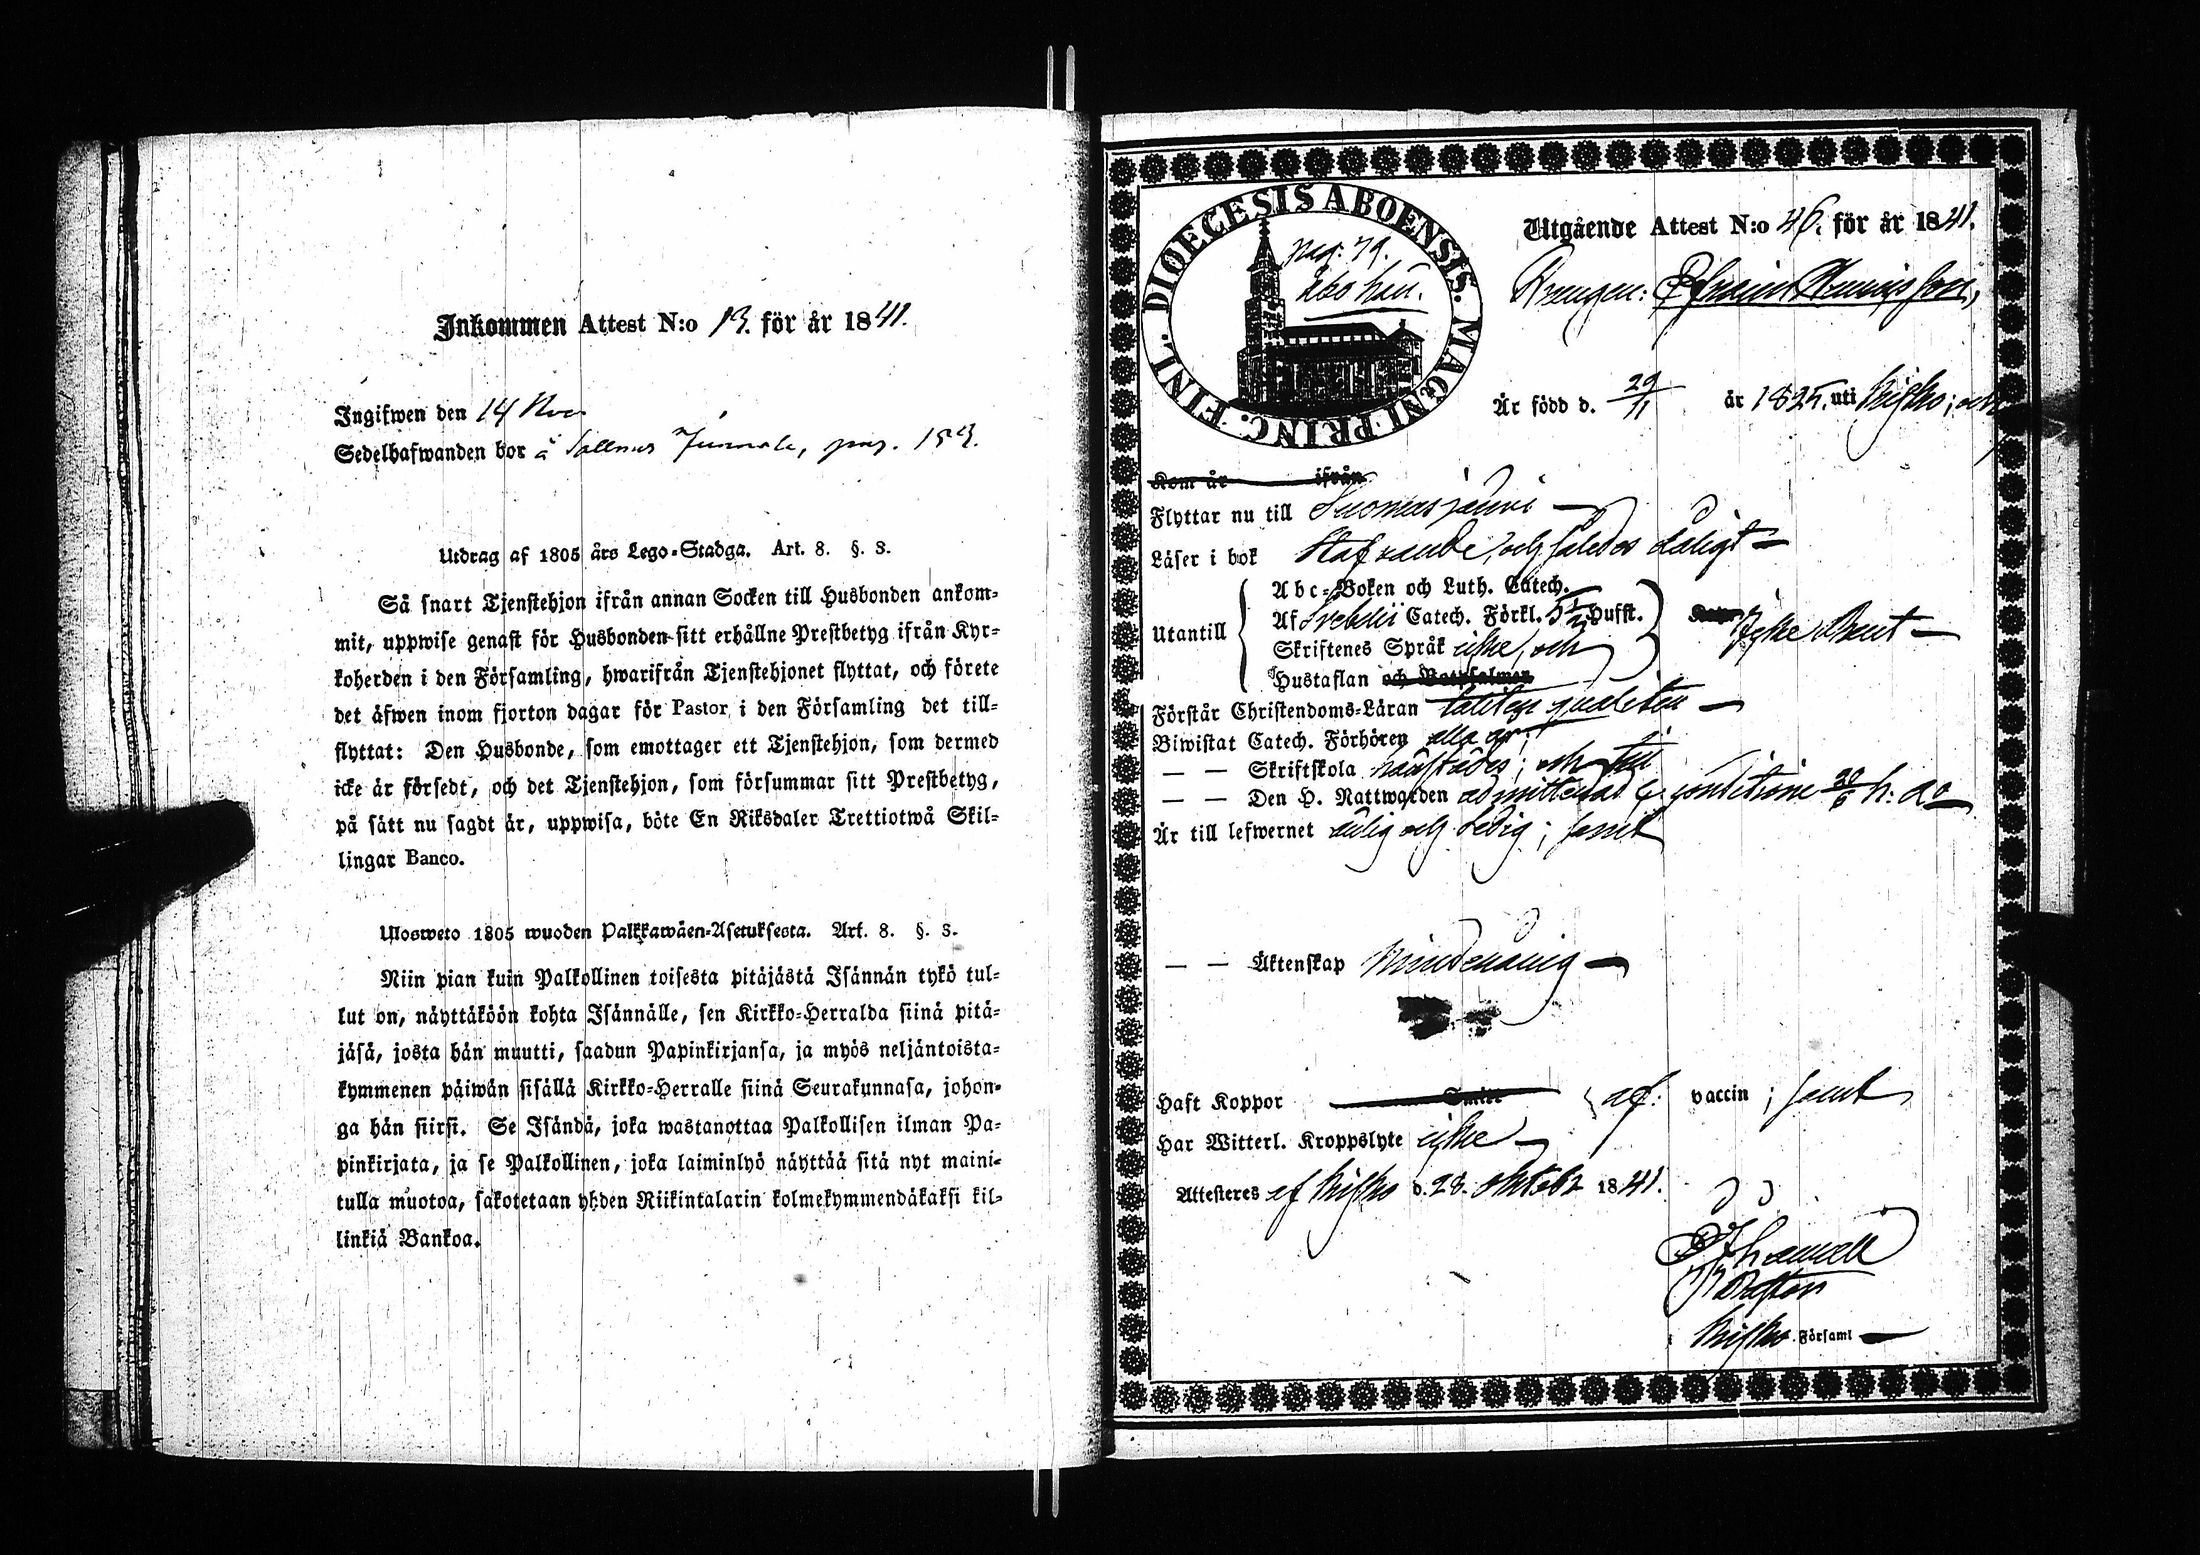 Inkommen Attest N:o 13. för år 1841.
Ingifwen den 14 Nov
Sedelhafwanden bor å pag. 153.
Utdrag af 1805 års Lego-Stadga. Art. 8. §. 3.
Så snart Tjenstehjon ifrån annan Socken till Husbonden ankom-
mit, uppwise genast för Husbonden sitt erhållne Prestbetyg ifrån Kyr-
koherden i den Församling, hwarifrån Tjenstehjonet flyttat, och förete
det äfwen inom fjorton dagar för Pastor i den Församling det till-
flyttat: Den Husbonde, som emottager ett Tjenstehjon, som dermed
icke är försedt, och det Tjenstehjon, som försummar sitt Prestbetyg,
på sätt nu sagdt är, uppwisa, böte En Riksdaler Trettiotwå Skil-
lingar Banco.
Ulosweto 1805 wuoden Palkkawäen-Asetuksesta. Art. 8. §. 3.
Niin pian kuin Palkollinen toisesta pitäjästä Isännän tykö tul-
lut on, näyttäköön kohta Isännälle, sen Kirkko-Herralda siinä pitä-
jäsä, josta hän muutti, saadun Papinkirjansa, ja myös neljäntoista-
kymmenen päiwän sisällä Kirkko-Herralle siinä Seurakunnasa, johon-
ga hän siirsi. Se Isändä, joka wastanottaa Palkollisen ilman Pa-
pinkirjata, ja se Palkollinen, joka laiminlyö näyttää sitä nyt maini-
tulla muotoa, sakotetaan yhden Riikintalarin kolmekymmendäkaksi kil-
linkiä Bankoa.
FINL. DIOECESIS ABOENSIS. MAGNI PRINC.
pag. 79.
Utgående Attest N:o 46. för år 1841.
Drengen: Efraim
Är född d. 29/11 år 1825. uti Kisko; och
Kom år ifrån
Flyttar nu till Suomusjärvi
Läser i bok Stafvande, och således dåligt
Utantill
Abc-Boken och Luth. Catech.
Af Svebelii Catech. Förkl. 5 1/2 Hufst.
Skriftenes Språk icke, och
Hustaflan och Botpsalmer
Icke
Förstår Christendoms-Läran
Biwistat Catech. Förhören alla år;
— — Skriftskola och
— — Den H. Nattwarden admitterad conditione h: ao
Är till lefwernet ärlig och Ledig; samt
— — Äktenskap Minderårig
Haft Koppor af: vaccin; samt
Har Witterl. Kroppslyte icke
Attesteres af Kisko d. 28. Oktobr 1841.
Pastor
i Kisko Församl